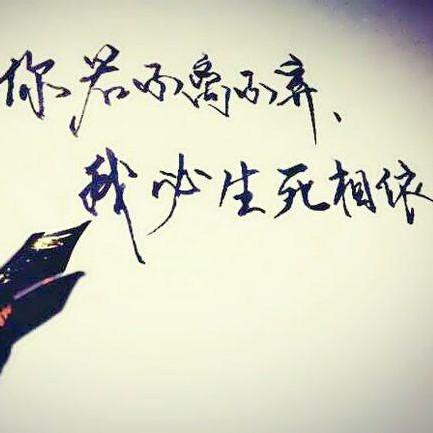 你若不离不弃、
我必生死相依